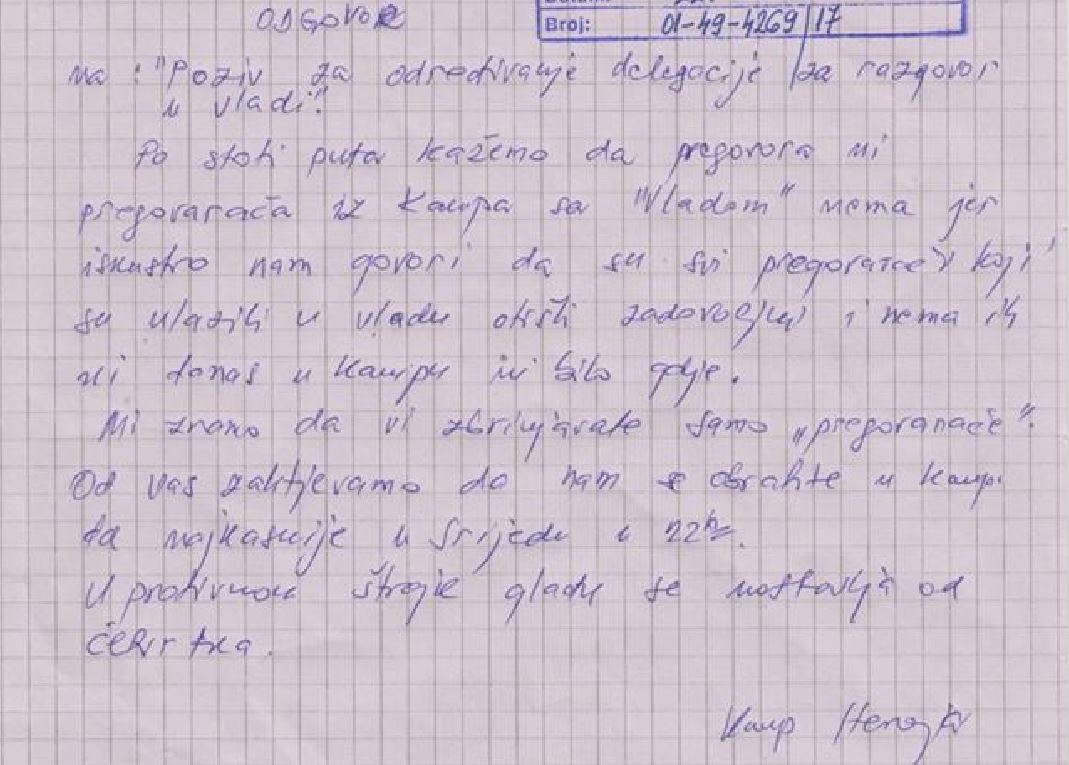 ODGOVOR
Broj: 01-49-4269/17
na: "Poziv za određivanje delegacije za razgovor
u vladi."
Po stoti puta kažemo da pregovora ni
pregovarača iz Kampa sa "Vladom" nema jer
iskustvo nam govori da su svi pregovarači koji
su ulazili u vladu otišli zadovoljni i nema ih
ni danas u kampu ni bilo gdje.
Mi znamo da vi zbrinjavate samo „pregovarače".
Od vas zahtjevamo da nam se obratite u kamp.
ta najkasnije u Srijedu u 22h.
U protivnom štrajk glađu se nastavlja od
četvrtka.
Kamp